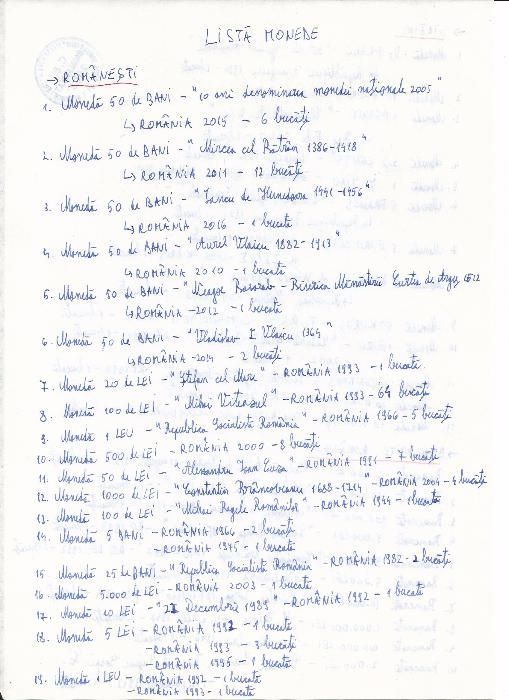 LISTĂ MONEDE
→ ROMÂNEȘTI
1. Monedă 50 de BANI - "10 ani denominarea monedei naționale 2005"
↳ ROMÂNIA 2015 - 6 bucăți
2. Monedă 50 de BANI - "Mircea cel Bătrân 1386-1418"
↳ ROMÂNIA 2011 - 12 bucăți
3. Monedă 50 de BANI - "Iancu de Hunedoara 1441-1456"
↳ ROMÂNIA 2016 - 1 bucată
4. Monedă 50 de BANI - "Aurel Vlaicu 1882-1913"
↳ ROMÂNIA 2010 - 1 bucată
5. Monedă 50 de BANI - "Neagoe Basarab - Biserica Mănăstirii Curtea de Argeș
↳ ROMÂNIA -2012 - 1 bucată
6. Monedă 50 de BANI - "Vladislav I Vlaicu 1364"
↳ ROMÂNIA -2014 - 2 bucăți
7. Monedă 20 de LEI - "Ștefan cel Mare" - ROMÂNIA 1993 - 1 bucată.
8. Monedă 100 de LEI - "Mihai Viteazul" - ROMÂNIA 1993 - 64 bucăți
9. Monedă 1 LEU - "Republica Socialistă România" - ROMÂNIA 1966 - 5 bucăți
10. Monedă 500 de LEI - ROMÂNIA 2000 - 8 bucăți
11. Monedă 50 de LEI - "Alexandru Ioan Cuza" - ROMÂNIA 1991 - 7 bucăți
12. Monedă 1000 de LEI - "Constantin Brâncoveanu 1688-1714" - ROMÂNIA 2004 - 4 bucăți
13. Monedă 100 de LEI - "Mihai Regele Românilor" - ROMÂNIA 1944 - 1 bucată
14. Monedă 5 BANI - ROMÂNIA 1966 - 2 bucăți
- ROMÂNIA 1975 - 1 bucată
15. Monedă 25 de BANI - "Republica Socialistă România" - ROMÂNIA 1982 - 2 bucăți
16. Monedă 5.000 de LEI - ROMÂNIA 2003 - 1 bucată
17. Monedă 10 LEI - "22 Decembrie 1989" - ROMÂNIA 1992 - 1 bucată
18. Monedă 5 LEI - ROMÂNIA 1992 - 1 bucată
- ROMÂNIA 1993 - 3 bucăți
- ROMÂNIA 1995 - 1 bucată
19. Monedă 1 LEU - ROMÂNIA 1992 - 1 bucată
- ROMÂNIA 1993 - 1 bucată